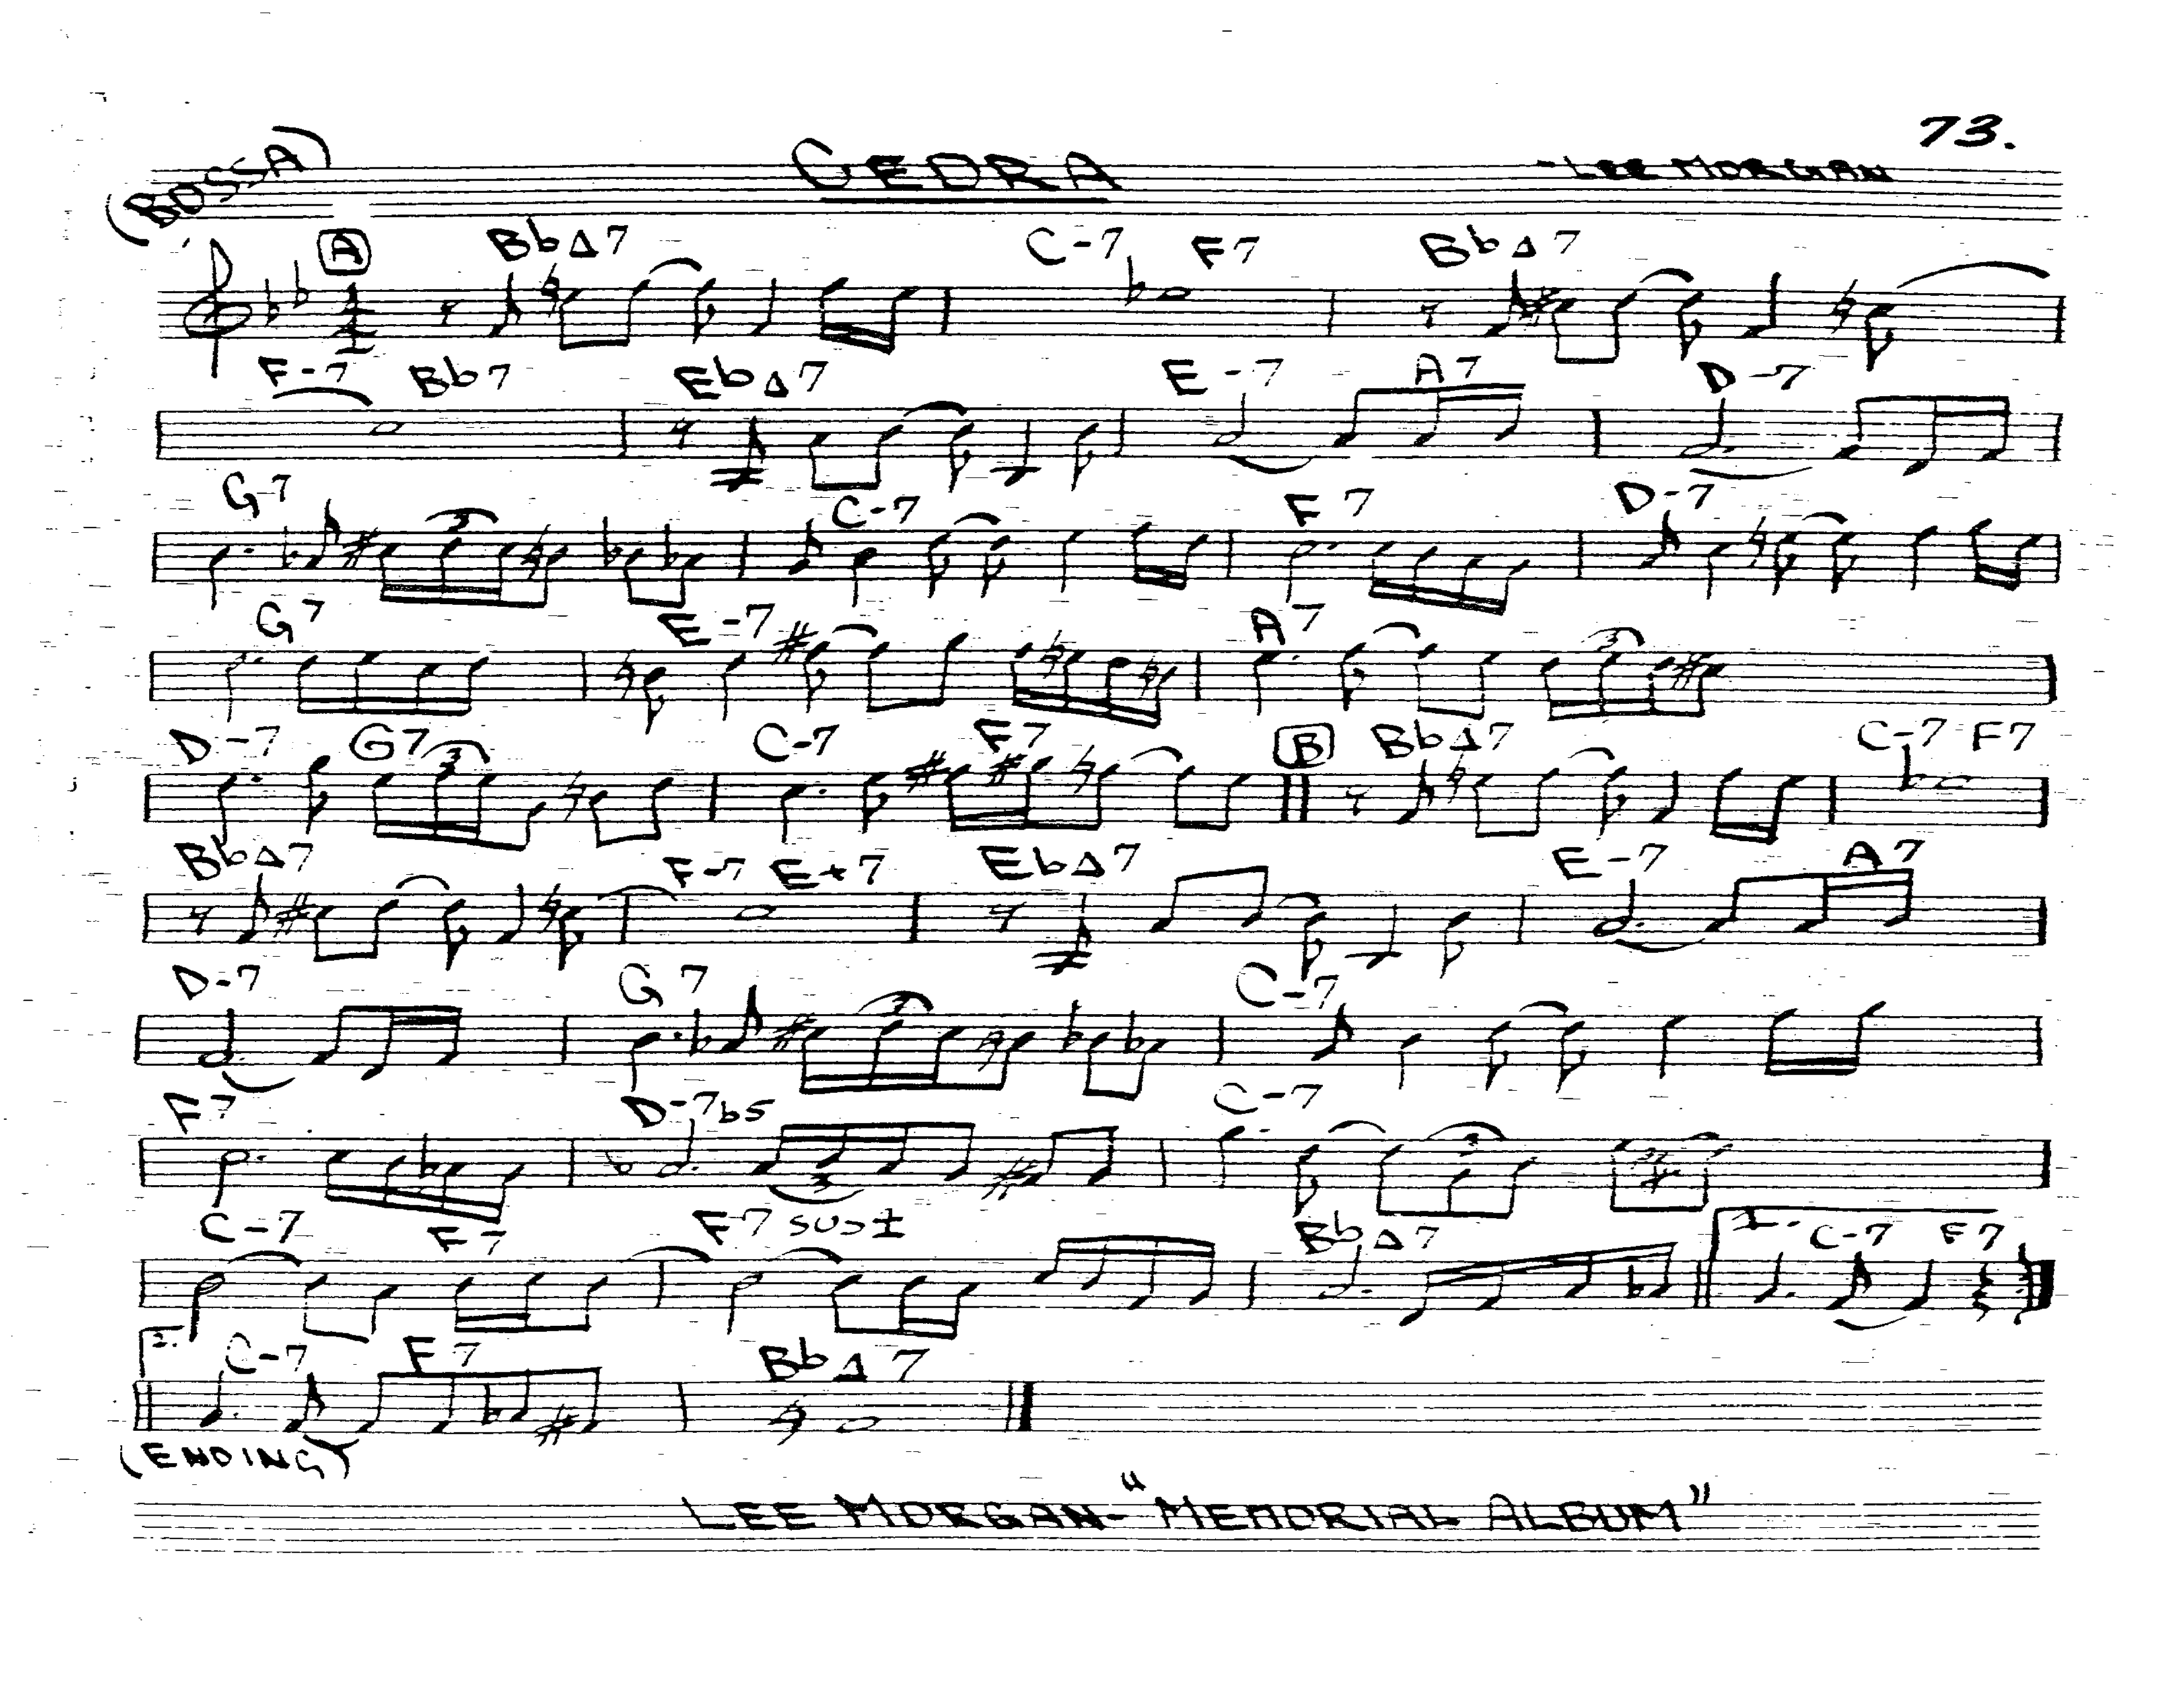 73.
(BOSSA) CEDRA -LEE MORGAN
A BbΔ7 C-7 F7 BbΔ7
F-7 Bb7 EbΔ7 E-7 A7 D-7
G7 3 C-7 F7 D-7
G7 E-7 A7 3
D-7 G7 3 C-7 F7 B BbΔ7 C-7 F7
BbΔ7 F-7 E+7 EbΔ7 E-7 A7
D-7 G7 3 C-7
F7 D-7b5 3 C-7 3
C-7 F7 F7 SUS4 BbΔ7 1. C-7 F7
2. C-7 F7 BbΔ7
(ENDING)
LEE MORGAN-"MEMORIAL ALBUM"